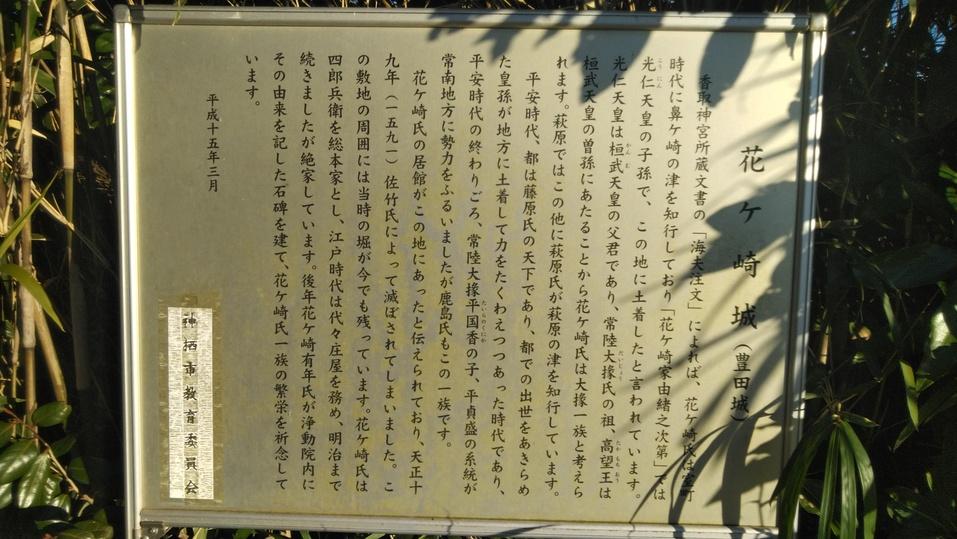 花ヶ崎城（豊田城）
香取神宮所蔵文書の「海夫注文」によれば、花ケ崎氏は室町
時代に鼻ケ崎の津を知行しており「花ケ崎家由緒之次第」では
光仁天皇の子孫で、この地に土着したと言われています。
光仁天皇は桓武天皇の父君であり、常陸大掾氏の祖、高望王は
桓武天皇の曽孫にあたることから花ケ崎氏は大掾一族と考えら
れます。萩原ではこの他に萩原氏が萩原の津を知行しています。
平安時代、都は藤原氏の天下であり、都での出世をあきらめ
た皇孫が地方に土着して力をたくわえつつあった時代であり、
平安時代の終わりごろ、常陸大掾平国香の子、平貞盛の系統が
常南地方に勢力をふるいましたが鹿島氏もこの一族です。
花ケ崎氏の居館がこの地にあったと伝えられており、天正十
九年（一五九一）佐竹氏によって滅ぼされてしまいました。こ
の敷地の周囲には当時の堀が今でも残っています。花ケ崎氏は
四郎兵衛を総本家とし、江戸時代は代々庄屋を務め、明治まで
続きましたが絶家しています。後年花ケ崎有年氏が浄動院内に
その由来を記した石碑を建て、花ケ崎氏一族の繁栄を祈念して
います。
平成十五年三月
神栖市教育委員会